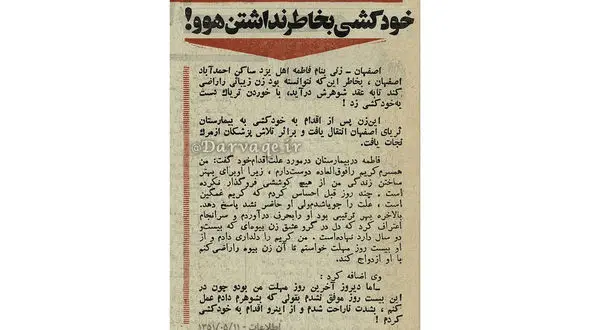 خودکشی بخاطر نداشتن هوو!
اصفهان – زنی بنام فاطمه اهل یزد ساکن احمدآباد
اصفهان ، بخاطر این‌که نتوانسته بود زن زیبائی راراضی
کند تابه عقد شوهرش درآید، با خوردن تریاک دست
به‌خودکشی زد !
این‌زن پس از اقدام به خودکشی به بیمارستان
ثریای اصفهان انتقال یافت و براثر تلاش پزشکان ازمرگ
نجات یافت.
@Darvage.ir
فاطمه دربیمارستان درمورد علت‌اقدام‌خود گفت: من
همسرم کریم رافوق‌العاده دوست‌دارم ، زیرا اوبرای بهتر
ساختن زندگی من از هیچ کوششی فروگذار نکرده
است . چند روز قبل احساس کردم که کریم غمگین
است ، علت را جویاشدم‌ولی او حاضر نشد پاسخ دهد.
بالاخره بهر ترتیبی بود او رابحرف درآوردم و سرانجام
اعتراف کرد که دل در گرو عشق زن بیوه‌ای که بیست‌و
دو سال دارد نهاده‌است . من کریم را دلداری دادم و از
او بیست روز مهلت خواستم تا آن زن بیوه راراضی‌کنم
با او ازدواج کند.
وی اضافه کرد :
–اما دیروز آخرین روز مهلت من بودو چون در
این بیست روز موفق نشدم بقولی که بشوهرم دادم عمل
کنم ، بشدت ناراحت شدم و از اینرو اقدام به خودکشی
کردم !
اطلاعات - ۱۳۵۱/۰۵/۱۱